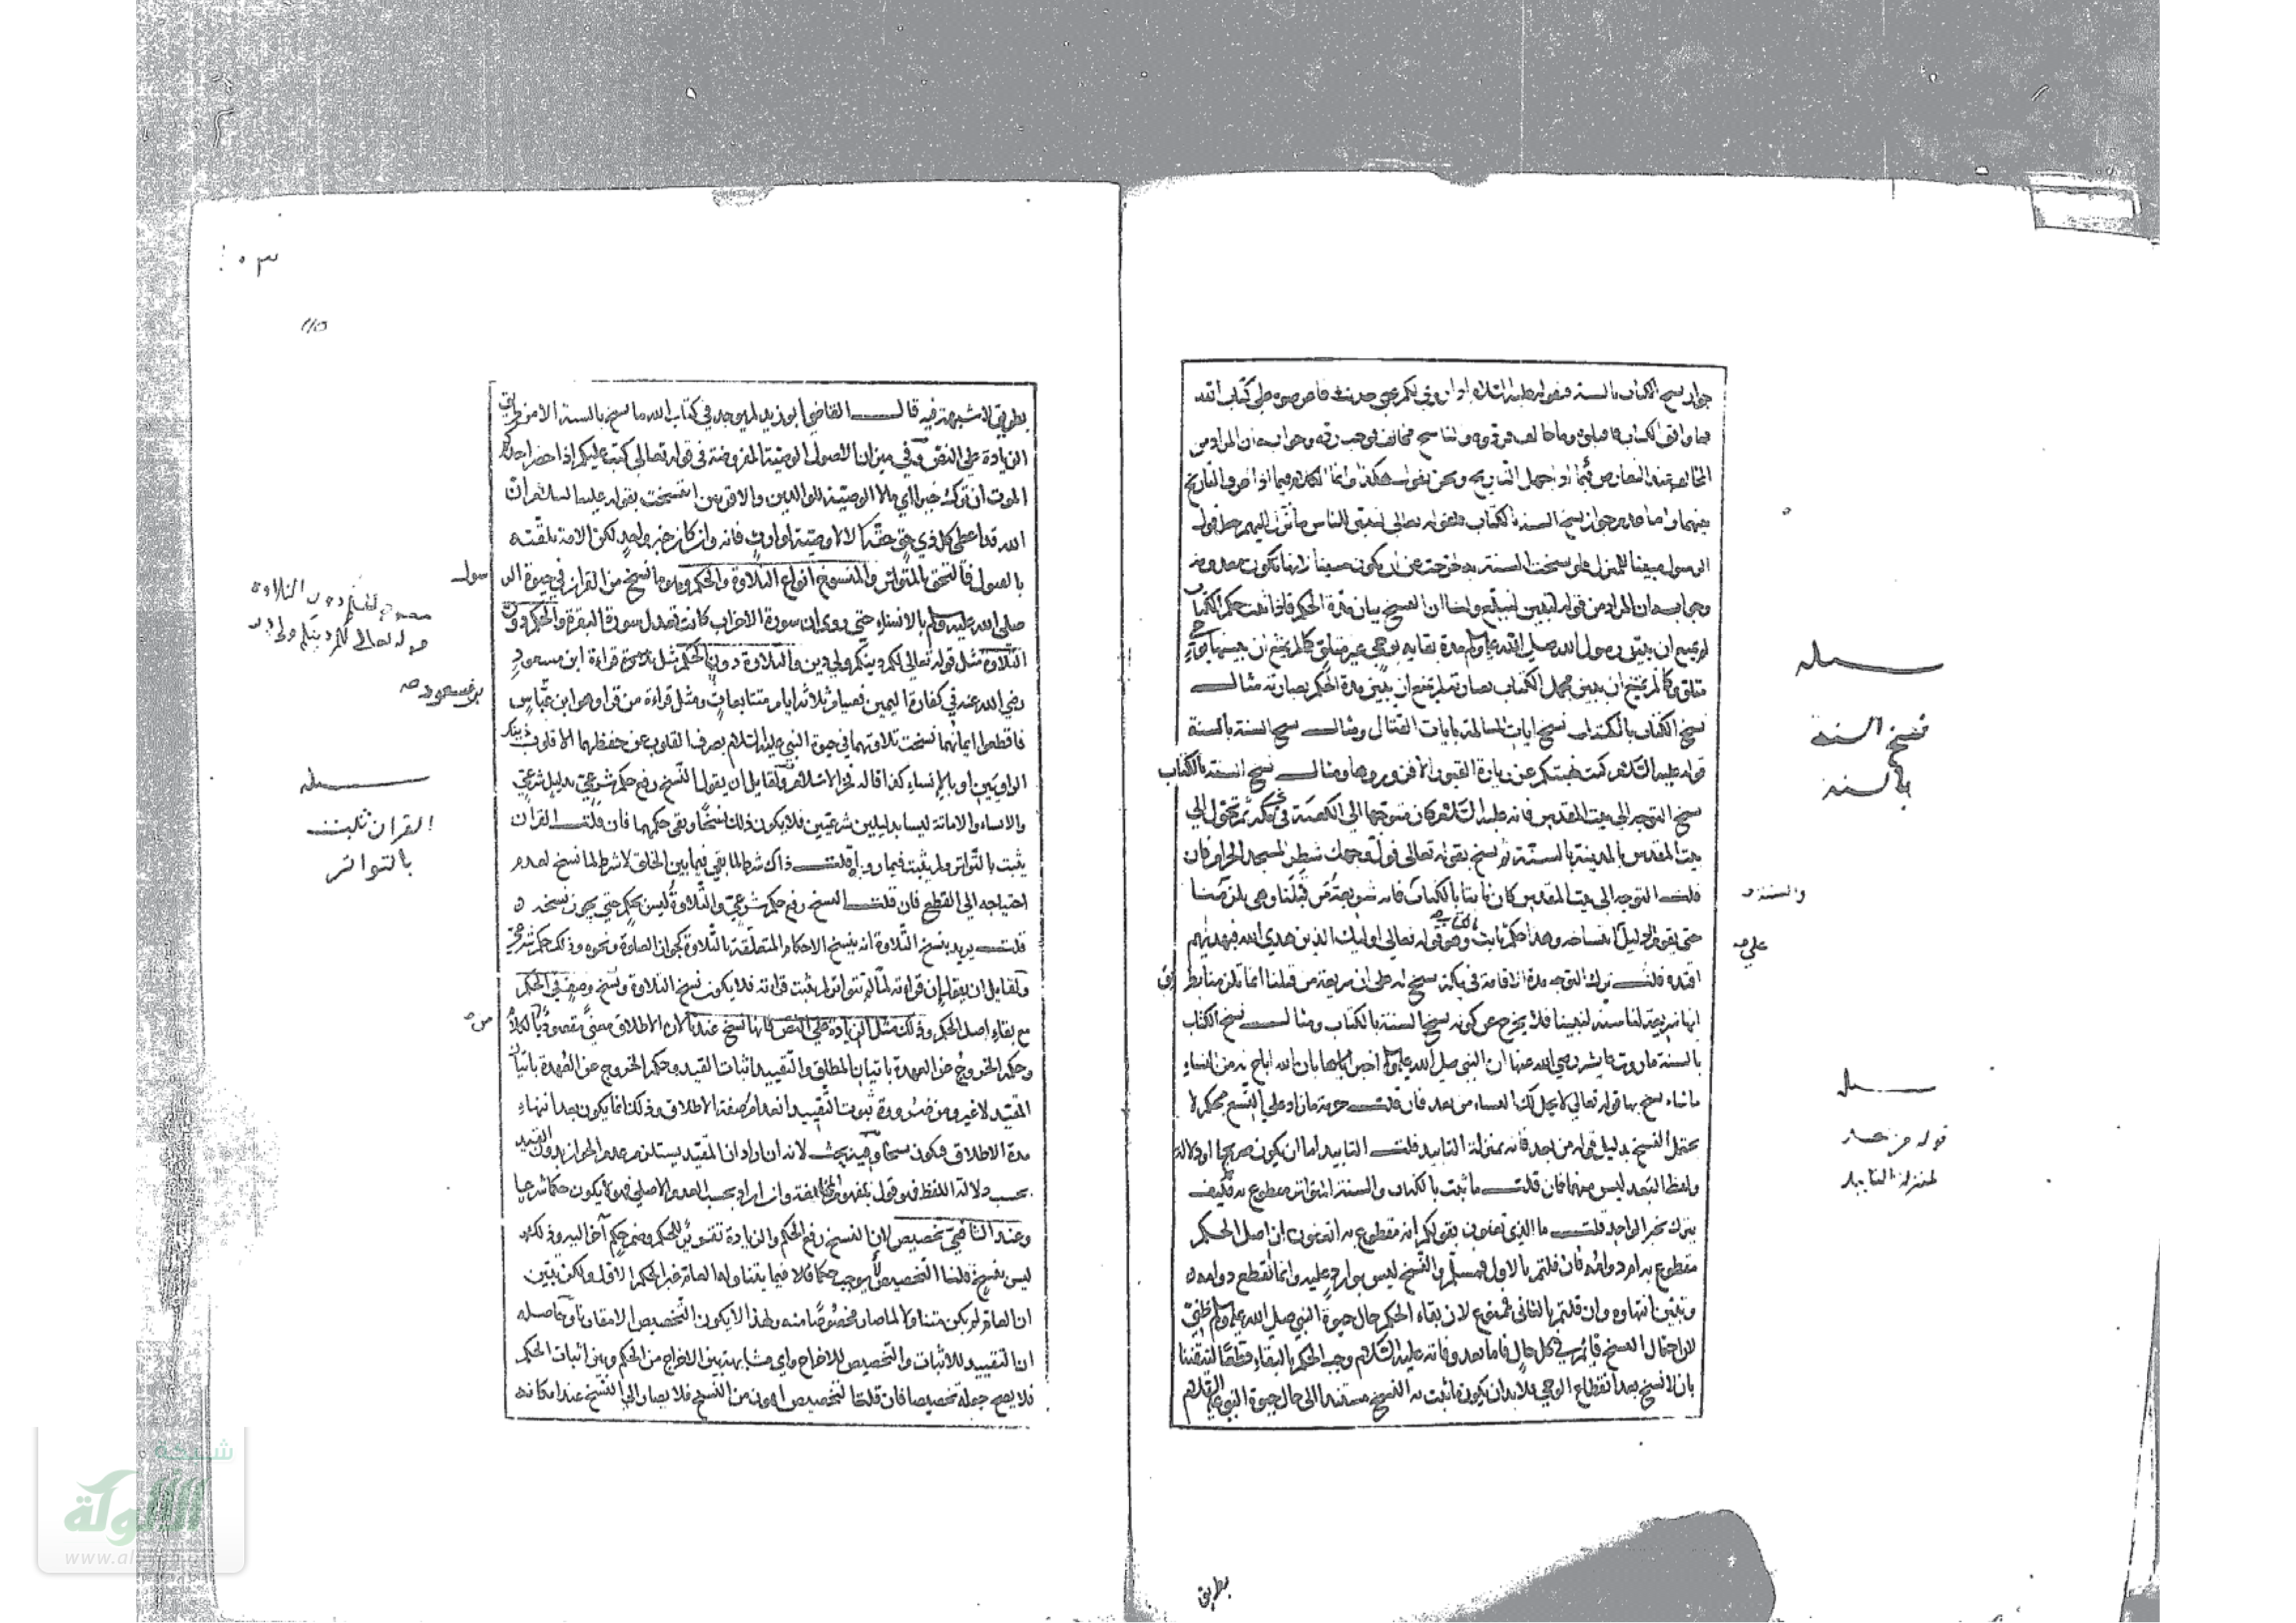 جواز نسخ الكتاب بالسنة فبقوله عليه السلام اذا روي لكم عني حديث فاعرضوه على كتاب الله
فما وافق الكتاب فاقبلوه وما خالف فردوه والناسخ مخالف فوجب رده وجوابه ان المراد من
المخالفة عند التعارض فيما اذا جهل التاريخ ونحن نقول هكذا وانما الكلام فيما اذا عرف التاريخ
بينهما واما عدم جواز نسخ السنة بالكتاب فلقوله تعالى لتبين للناس ما نزل اليهم جعل قول
الرسول مبينا للمنزل فلو نسخت السنة به لخرجت عن ان يكون مبينا لانها تكون معدومة
وجوابه ان المراد من قوله لتبين لتبلغ وايضا ان النسخ بيان مدة الحكم فاذا ثبت حكم الكتاب
لم يمتنع ان يبين رسول الله صلى الله عليه وسلم مدة بقايه بوحي غير متلو كما لم يمتنع ان يبينها بوحي
متلو وكما لم يمتنع ان يبين مجمل الكتاب بعبارته لم يمتنع ان يبين مدة الحكم بعبارته مثال
نسخ الكتاب بالكتاب نسخ ايات المسالمة بايات القتال ومثال نسخ السنة بالسنة
قوله عليه السلام كنت نهيتكم عن زيارة القبور الا فزوروها ومثال نسخ السنة بالكتاب
نسخ التوجه الى بيت المقدس فانه عليه السلام كان متوجها الى الكعبة في مكة ثم تحول الى
بيت المقدس بالمدينة بالسنة ثم نسخ بقوله تعالى فول وجهك شطر المسجد الحرام فان
قلت التوجه الى بيت المقدس كان ثابتا بالكتاب فانه شريعة من قبلنا وهي يلزمنا
حتى يقوم الدليل على انتساخه وهذا حكم ثابت بالكتاب وهو قوله تعالى اوليك الذين هدى الله فبهديهم
اقتده قلت ترك التوجه مدة الاقامة في مكة نسخ له على ان شريعة من قبلنا انما تلزمنا بطريق
انها شريعة لنا سنة لنبينا فلا يخرج عن كونه نسخ السنة بالكتاب ومثال نسخ الكتاب
بالسنة ما روت عايشة رضي الله عنها ان النبي صلى الله عليه وسلم اخبرها بان الله اباح له من النساء
ما شاء نسخ بها قوله تعالى لا يحل لك النساء من بعد فان قلت حرمة ما زاد على التسع محكم لا
يحتمل النسخ بدليل قوله من بعد فانه بمنزلة التابيد قلت التابيد اما ان يكون صريحا او دلالة
ولفظ البعد ليس منهما فان قلت ما ثبت بالكتاب والسنة المتواتر مقطوع به فكيف
يترك بخبر الواحد قلت ما الذي تعنون بقولكم انه مقطوع به اتعنون ان اصل الحكم
مقطوع به ام دوامه فان قلتم بالاول فمسلم والنسخ ليس بوارد عليه وانما نقطع دوامه
وتبين انتهاوه وان قلتم بالثاني فممنوع لان بقاء الحكم حال حيوة النبي صلى الله عليه وسلم ظني
لان احتمال النسخ قايم في كل حال فاما بعد وفاته عليه السلام وجب الحكم بالبقاء قطعا لتيقننا
بان لا نسخ بعد انقطاع الوحي فلا بد ان يكون ما ثبت به النسخ مستندا الى حال حيوة النبي عليه السلام
بطريق
والسنة
على
مسئلة
نسخ السنة
بالسنة
مسئلة
قوله من بعد
بمنزلة التابيد
بطريق لا شبهة فيه قال القاضي ابو زيد لم يوجد في كتاب الله ما نسخ بالسنة الا من طريق
الزيادة على النص وفي ميزان الاصول الوصية المفروضة في قوله تعالى كتب عليكم اذا حضر احدكم
الموت ان ترك خيرا اي مالا الوصية للوالدين والاقربين انتسخت بقوله عليه السلام ان
الله قد اعطى كل ذي حق حقه الا لا وصية لوارث فانه وان كان خبر واحد لكن الامة تلقته
بالقبول فالتحق بالمتواتر والمنسوخ انواع التلاوة والحكم وهو ما نسخ من القران في حيوة الرسول
صلى الله عليه وسلم بالانساء حتى روي ان سورة الاحزاب كانت تعدل سورة البقرة والحكم دون
التلاوة مثل قوله تعالى لكم دينكم ولي دين والتلاوة دون الحكم مثل قراءة ابن مسعود
رضي الله عنه في كفارة اليمين فصيام ثلاثة ايام متتابعات ومثل قراءة من قراء وهو ابن عباس
فاقطعوا ايمانهما نسخت تلاوتهما في حيوة النبي عليه السلام بصرف القلوب عن حفظهما الا قلوب ذينك
الراويين او بالانساء كذا قاله فخر الاسلام ولقايل ان يقول النسخ رفع حكم شرعي بدليل شرعي
والانساء والاماتة ليسا بدليلين شرعيين فلا يكون ذلك نسخا وبقي حكمهما فان قلت القران
يثبت بالتواتر ولم يثبت فيما رويا قلت ذاك شرط لما بقي فيما بين الخلق لا شرط لما نسخ لعدم
احتياجه الى القطع فان قلت النسخ رفع حكم شرعي والتلاوة ليس بحكم حتى يجوز نسخه
قلت يريد بنسخ التلاوة انه ينسخ الاحكام المتعلقة بالتلاوة كجواز الصلوة ونحوه وذلك حكم شرعي
ولقايل ان يقول ان قراءته لما لم تتواتر لم تثبت قراءته فلا يكون نسخ التلاوة ونسخ وصف في الحكم
مع بقاء اصل الحكم وذلك مثل الزيادة على النص فانها نسخ عندنا لان الاطلاق معنى مقصود بالكلام
وحكم الخروج عن العهدة باتيان المطلق والتقييد اثبات القيد وحكم الخروج عن العهدة باتيان
المقيد لا غير ومن ضرورة ثبوت التقييد انعدام صفة الاطلاق وذلك انما يكون بعد انتهاء
مدة الاطلاق فيكون نسخا وفيه بحث لانه ان اراد ان المقيد يستلزم عدم الجواز بدون القيد
بحسب دلالة اللفظ فهو قول بمفهوم المخالفة وان اراد بحسب العدم الاصلي فهو لا يكون حكما شرعيا
وعند الشافعي تخصيص لان النسخ رفع الحكم والزيادة تقرير للحكم وضم حكم آخر اليه وذلك
ليس بنسخ قلنا التخصيص لا يوجب حكما فلا فيما يتناوله العام غير الحكم الاول ولكن يبين
ان العام لم يكن متناولا لما صار مخصوصا منه ولهذا لا يكون التخصيص الا مقارنا وحاصله
ان التقييد للاثبات والتخصيص للاخراج واي مشابهة بين الاخراج من الحكم وبين اثبات الحكم
فلا يصح جعله تخصيصا فان قلت التخصيص اهون من النسخ فلا يصار الى النسخ عند امكانه
سول
الحكم دون التلاوة
قوله تعالى لكم دينكم ولي دين
بن مسعود
مسئلة
القران يثبت
بالتواتر
من
شبكة
الألوكة